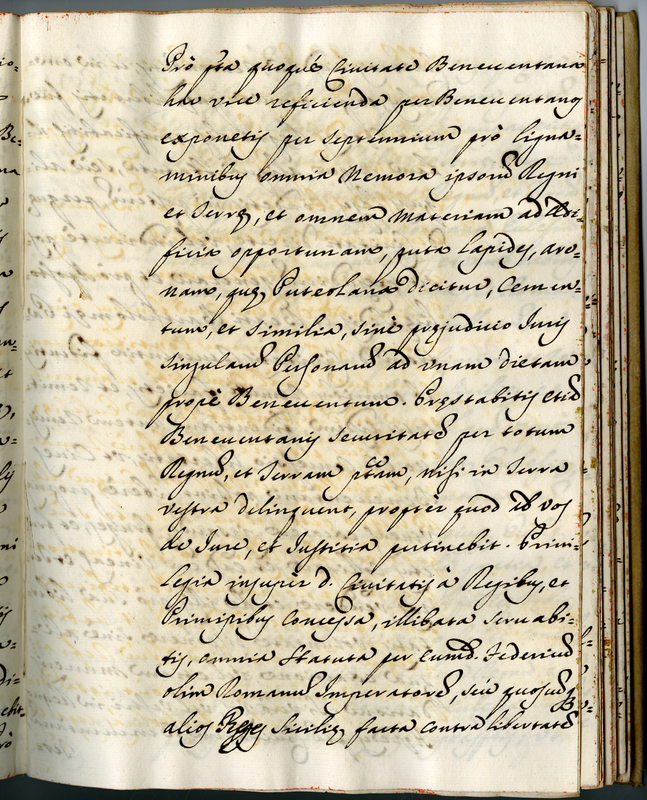 Prò pta quoquè Civitate Beneventana
hac vice reficienda per Beneventanos
exponetis per septennium prò ligna=
minibus omnia Nemora ipsorũ Regni
et Terrę, et omnem materiam ad Ædi=
ficia opportunam, puta lapides, are=
nam, quę Puteolana dicitur, Cemen=
tum, et similia, sinè pręjudicio Iuris
singularũ Personarũ ad unam dietam
propè Beneventum. Pręstabitis etiã
Beneventanis securitatẽ per totum
Regnũ, et Terram ptam, nisi in Terra
vestra delinquent, proptèr quod ad vos
de Jure, et Justitia pertinebit. Privi=
legia insupèr d. Civitatis à Regibus, et
Principibus concessa, illibata servabi=
tis, omnia statuta per eumd. Federicũ
olim Romanũ Imperatorẽ, seù quosuis
alios Reges Sicilię facta contra libertatẽ